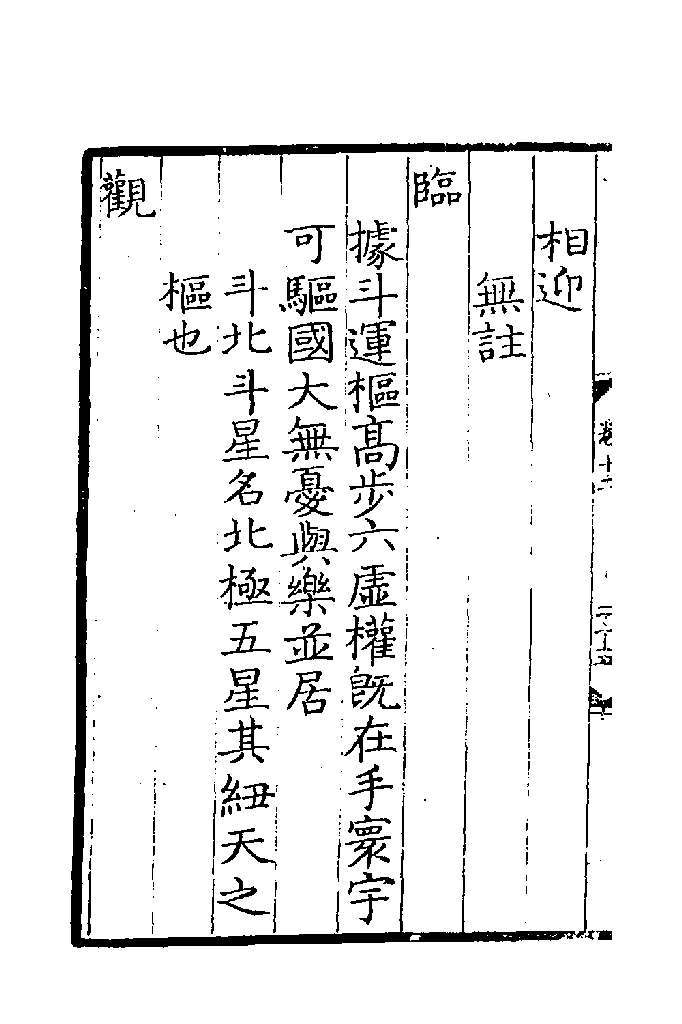 相迎
無註
臨
據斗運樞髙步六虛權旣在手寰宇
可驅國大無憂與樂並居
斗北斗星名北極五星其紐天之
樞也
觀
卷十二